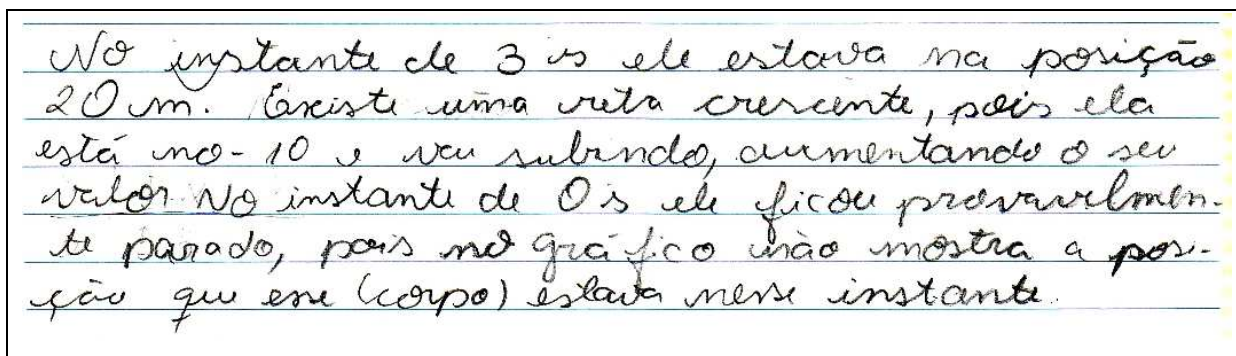 No instante de 3 s ele estava na posição
20 m. Existe uma reta crescente, pois ela
está no -10 e vai subindo, aumentando o seu
valor. No instante de 0 s ele ficou provavelmen-
te parado, pois no gráfico não mostra a posi-
ção que esse (corpo) estava nesse instante.